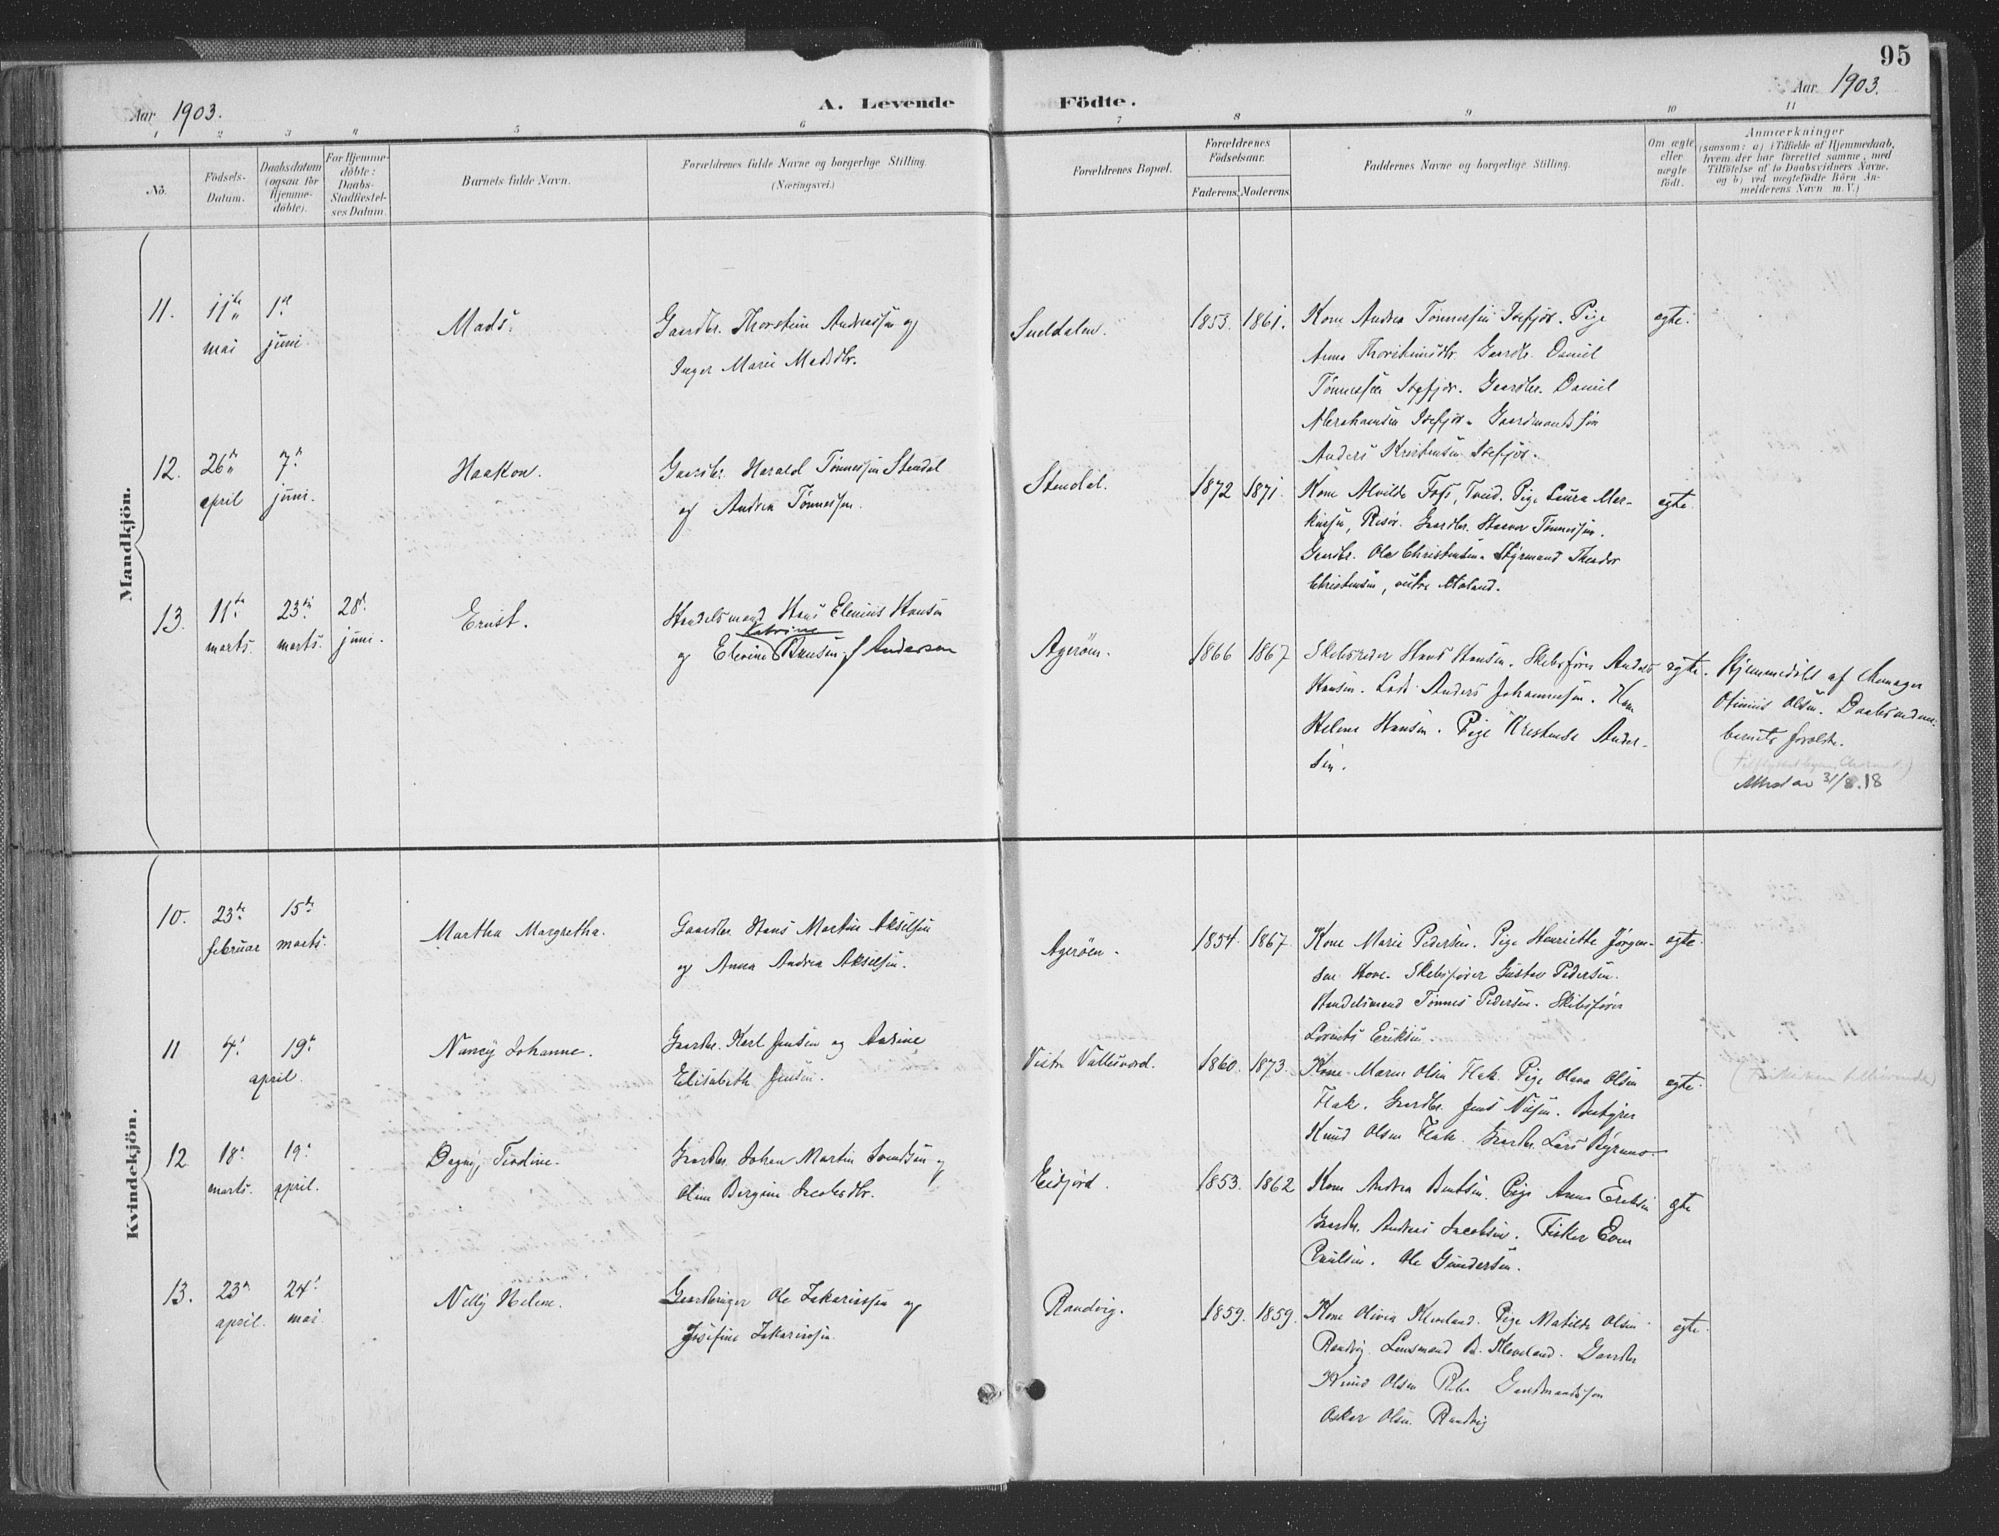 95
Aar 1903.
A. Levende Födte.
Aar 1903.
1 2 3 4 5 6 7 8 9 10 11
No.
Födsels-
Datum.
Daabsdatum
(ogsaa for
Hjemme-
döbte).
For Hjemme-
döbte:
Daabs-
Stadfæstel-
ses Datum.
Barnets fulde Navn.
Forældrenes fulde Navne og borgerlige Stilling.
(Næringsvei.)
Forældrenes Bopæl.
Forældrenes
Födselsaar.
Faderens. Moderens.
Faddernes Navne og borgerlige Stilling.
Om ægte
eller
uægte
födt.
Anmærkninger
(saasom: a) i Tilfælde af Hjemmedaab,
hvem der har forrettet samme, med
Tilföielse af to Daabsvidners Navne,
og b) ved uægtefödte Börn An-
melderens Navn m. V.)
Mandkjön.
11.
11te
mai
1st
juni.
Mads.
Gaardbr. Thorstein Andreassen og
Inger Marie Madsdtr.
1853. 1861.
Kone Andrea Tønnessen Isefjær. Pige
Anna Thorsteinsdtr. Gaardbr. Daniel
Tønnessen Isefjær. Gaardbr. Daniel
Abrahamsen Isefjær. Gaardmandssøn
Anders Kristensen Isefjær.
egte.
12.
26de
april
7de
juni.
Haakon.
Gaardbr. Harald Tønnessen Stendal
og Andrea Tønnessen.
Stendal.
1872 1871.
Kone Alvilde Foss, Tved. Pige Laura
Risør. Gaardbr. Tønnessen.
Gaardbr. Ole Christensen. Styrmand Theodor
Christensen,
egte.
13.
11te
marts.
23de
marts.
28de
juni.
Ernst.
Handelsmand Hans Elenius Hansen
Katrine
og Elevine Hansen f Andersen
Agerøen.
1866 1867
Skibsreder Hans Hansen. Skibsfører Anders
Hansen. Lods Anders Johannessen. Kone
Helene Hansen. Pige Kristense Ander-
sen.
egte.
Hjemmedøbt af
Olsen.
barnets forældre.
31/8.18
Kvindekjön.
10.
23de
februar
15de
marts.
Martha Margretha.
Gaardbr. Hans Martin Akselsen
og Anna Andrea Akselsen.
Agerøen.
1854. 1867.
Kone Marie Pedersen. Pige Henriette Jørgen-
sen Skibsfører Gustav Pedersen.
Handelsmand Tønnes Pedersen. Skibsfører
Lorents Eriksen.
egte.
11
4de
19de
april.
Nancy Johanne.
Gaardbr. Karl Jensen og Andrine
Elisabeth Jensen.
Vestre Vallesværd.
1860. 1873.
Kone Maren Olsen Flak. Pige Olava Olsen
Flak. Gaardbr. Jens Nilsen.
Knud Olsen Flak. Gaardbr. Lars
egte.
12
18de
marts.
19de
april.
Dagny Teodine.
Gaardbr. Johan Martin Svendsen og
Oline Bergine Jacobsdtr.
Eidjord.
1853. 1862
Kone Andrea Berntsen. Pige Anna Eriksen
Gaardbr. Andreas Jacobsen. Fisker Even
Paulsen. Ole Gundersen.
egte
13.
23de
april.
24de
mai.
Nelly Helene.
Gaardbruger Ole Zakariassen og
Josefine Zakariassen.
Randvig.
1859. 1859.
Kone Olivia Kleveland. Pige Matilde Olsen
Randvig. Lensmand B. Kleveland. Gaardbr
Knud Olsen Gaardmandssøn
Oskar Olsen Randvig
egte.